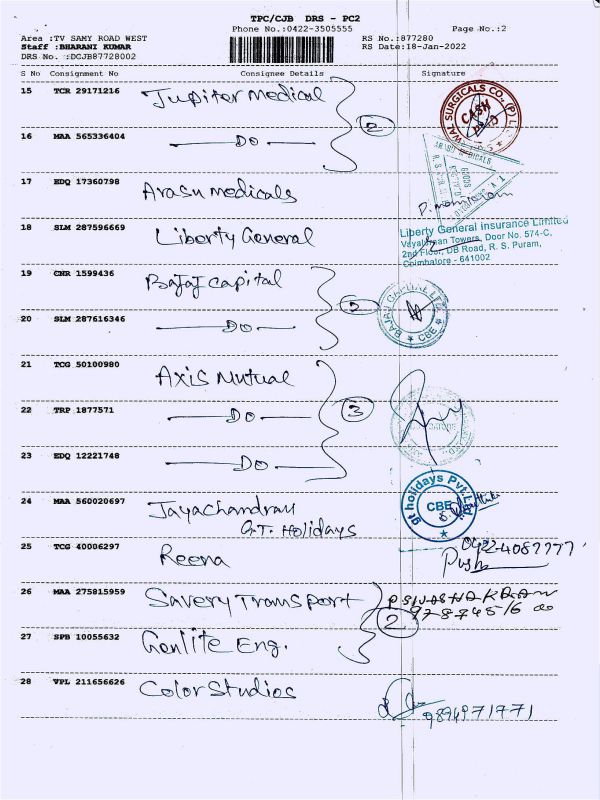 TPC/CJB DRS - PC2
Phone No.:0422-3505555 Page No.:2
Area :TV SAMY ROAD WEST RS No.:877280
Staff :BHARANI KUMAR RS Date:18-Jan-2022
DRS No. :DCJB87728002
S No Consignment No Consignee Details Signature
15 TCR 29171216 Jupiter Medical
2
SURGICALS CO., (P)
CASH
16 MAA 565336404 DO
ARASU MEDICALS
17 EDQ 17360798 Arasu medicals
18 SLM 287596669 Liberty General
Liberty General Insurance Limited
Towers, Door No. 574-C,
2nd Floor, DB Road, R. S. Puram,
Coimbatore - 641002
19 CNR 1599436 Bajaj Capital
2
BAJAJ CAPITAL LTD.
CBE
20 SLM 287616346 DO
21 TCG 50100980 Axis Mutual
3
22 TRP 1877571 DO
23 EDQ 12221748 DO
24 MAA 560020697 Jayachandran
G.T. Holidays
gt holidays Pvt.Ltd
CBE
25 TCG 40006297 Reena
0422-4087777
26 MAA 275815959 Savery Transport
2
27 SPB 10055632 Genlite Eng.
28 VPL 211656626 Color Studios
9894971771